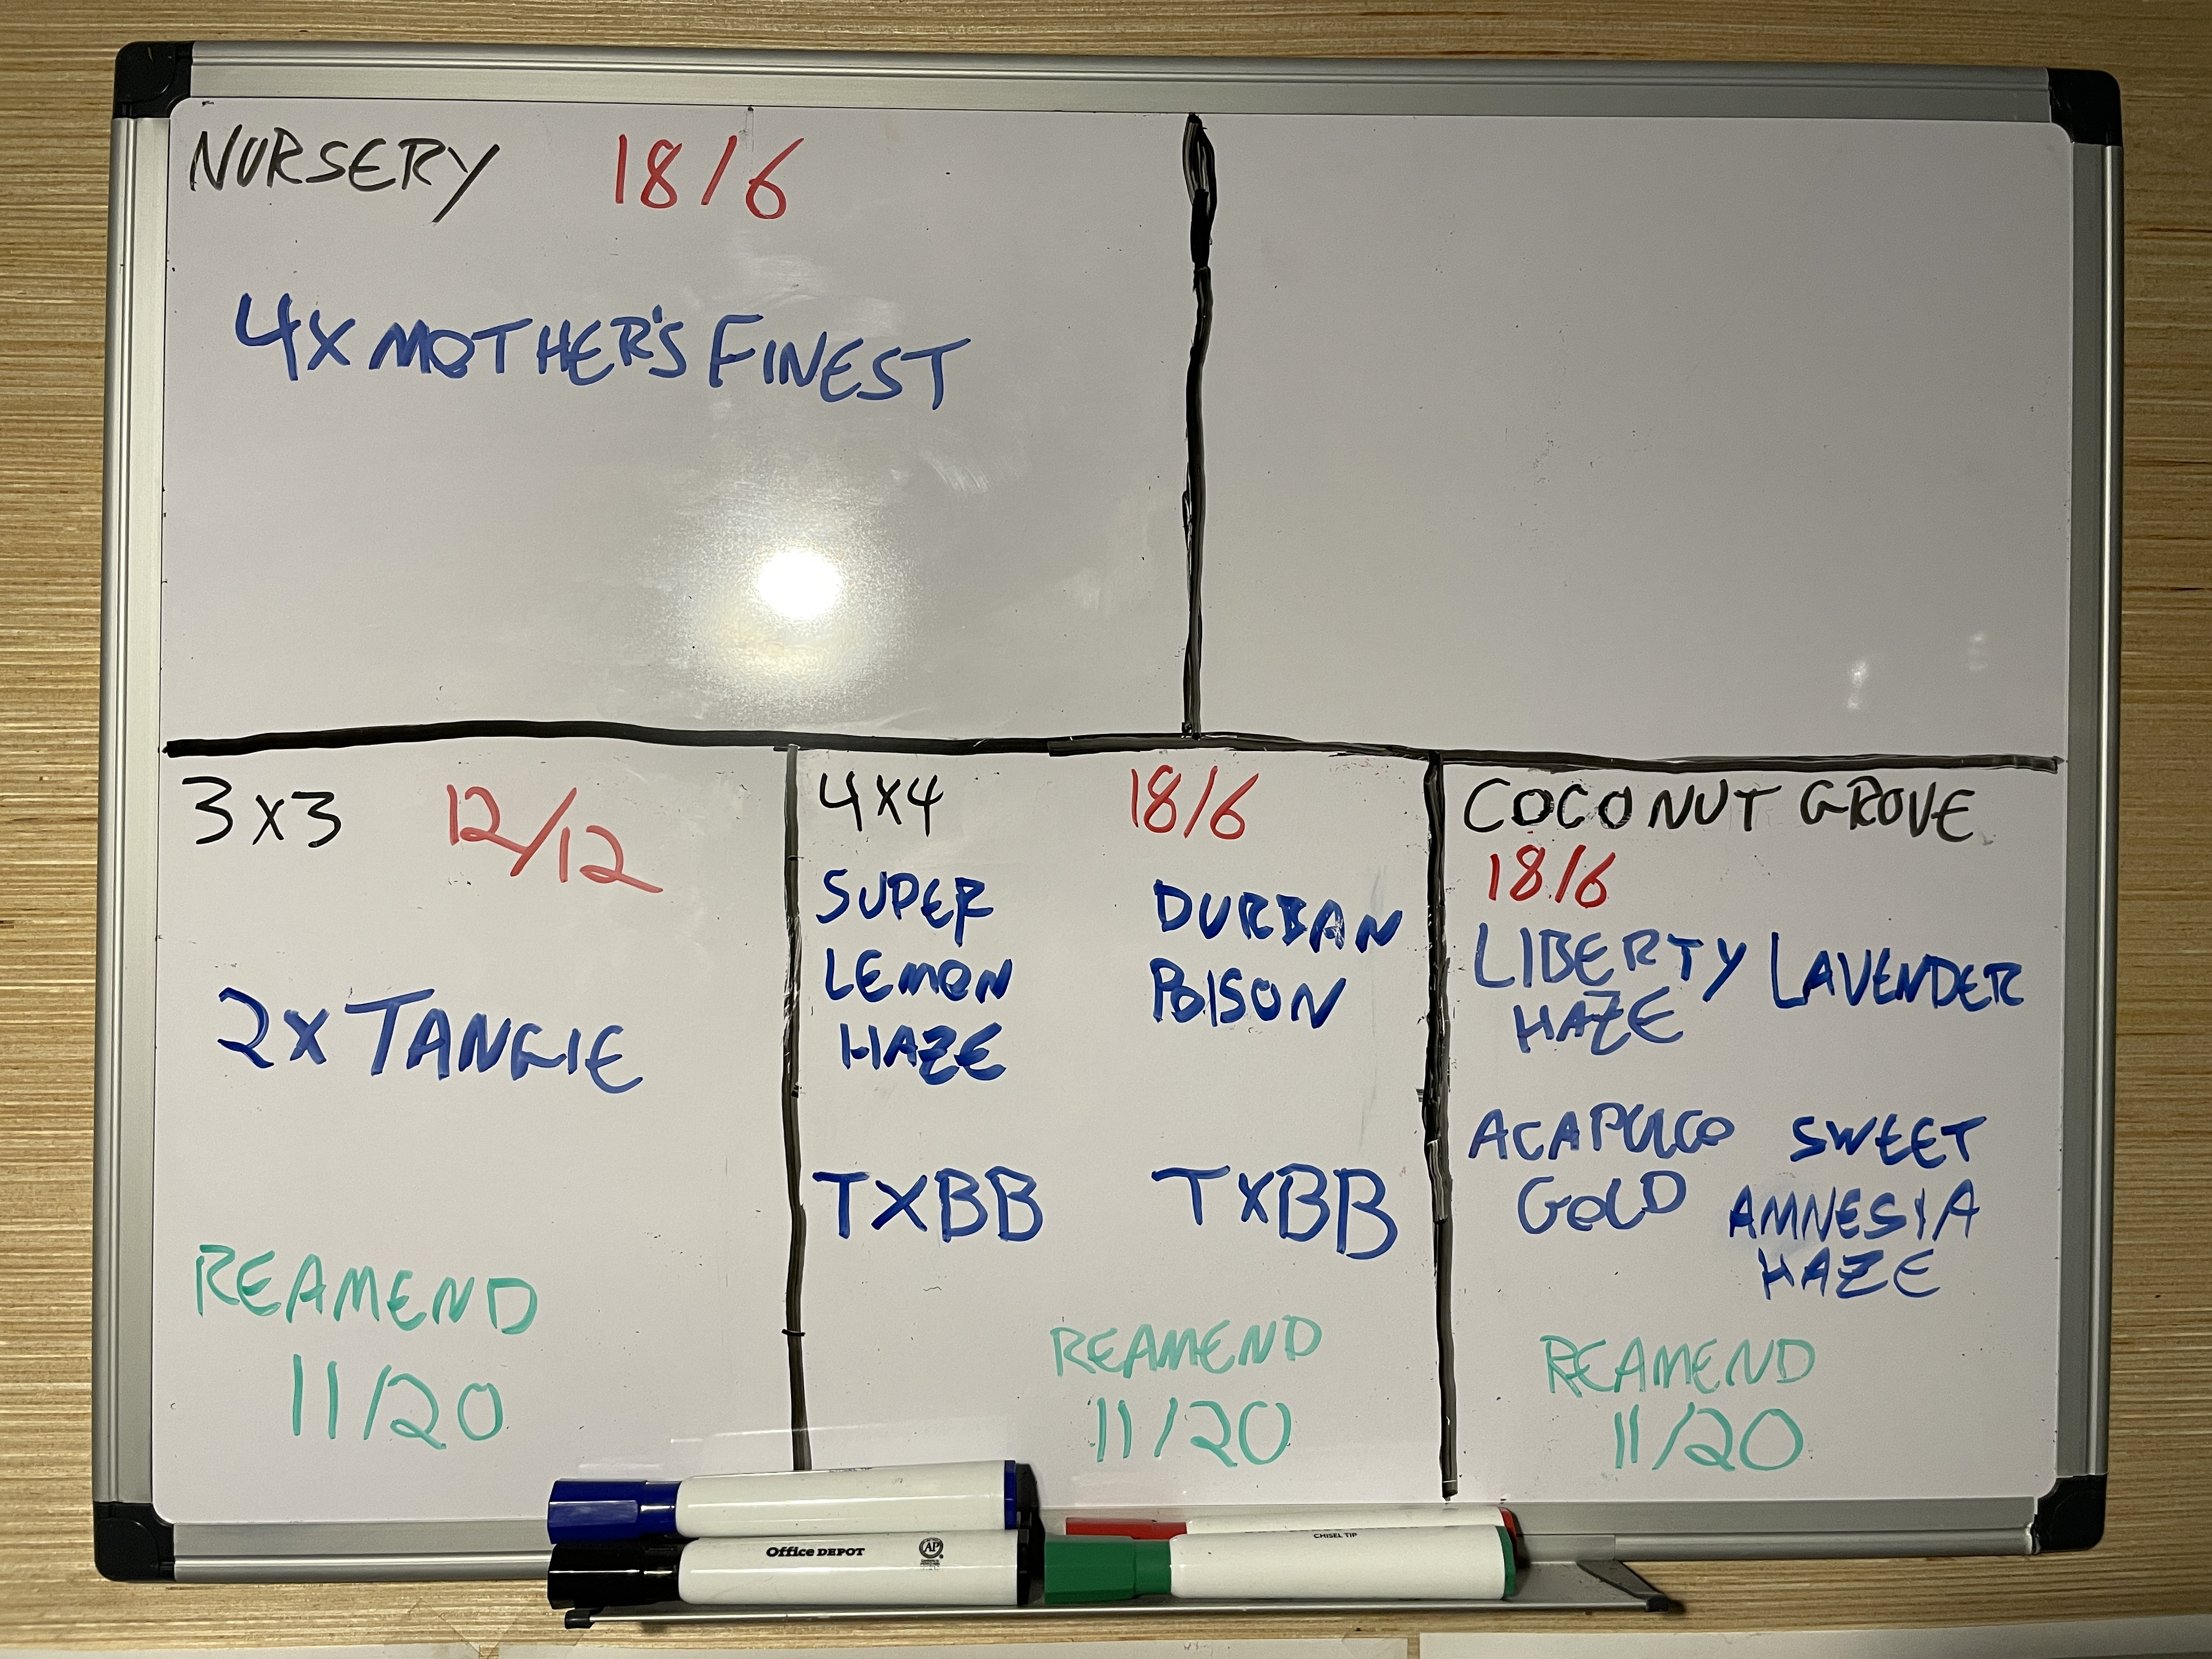 NURSERY 18/6
4X MOTHER'S FINEST
3X3 12/12
2X TANGIE
REAMEND
11/20
4X4 18/6
SUPER
LEMON
HAZE
DURBAN
POISON
TXBB TXBB
REAMEND
11/20
COCONUT GROVE
18/6
LIBERTY
HAZE
LAVENDER
ACAPULCO
GOLD
SWEET
AMNESIA
HAZE
REAMEND
11/20
Office DEPOT
AP
CHISEL TIP